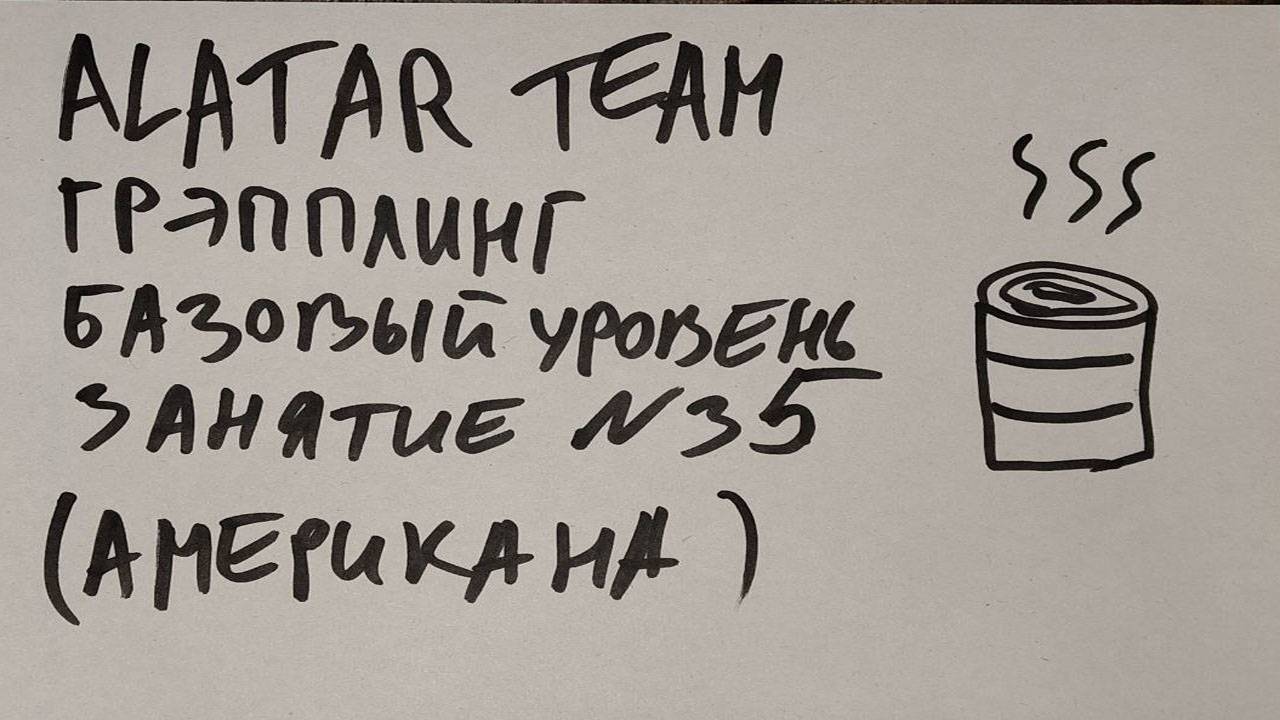 ALATAR TEAM
ГРЭППЛИНГ
БАЗОВЫЙ УРОВЕНЬ
ЗАНЯТИЕ N35
(АМЕРИКАНА)